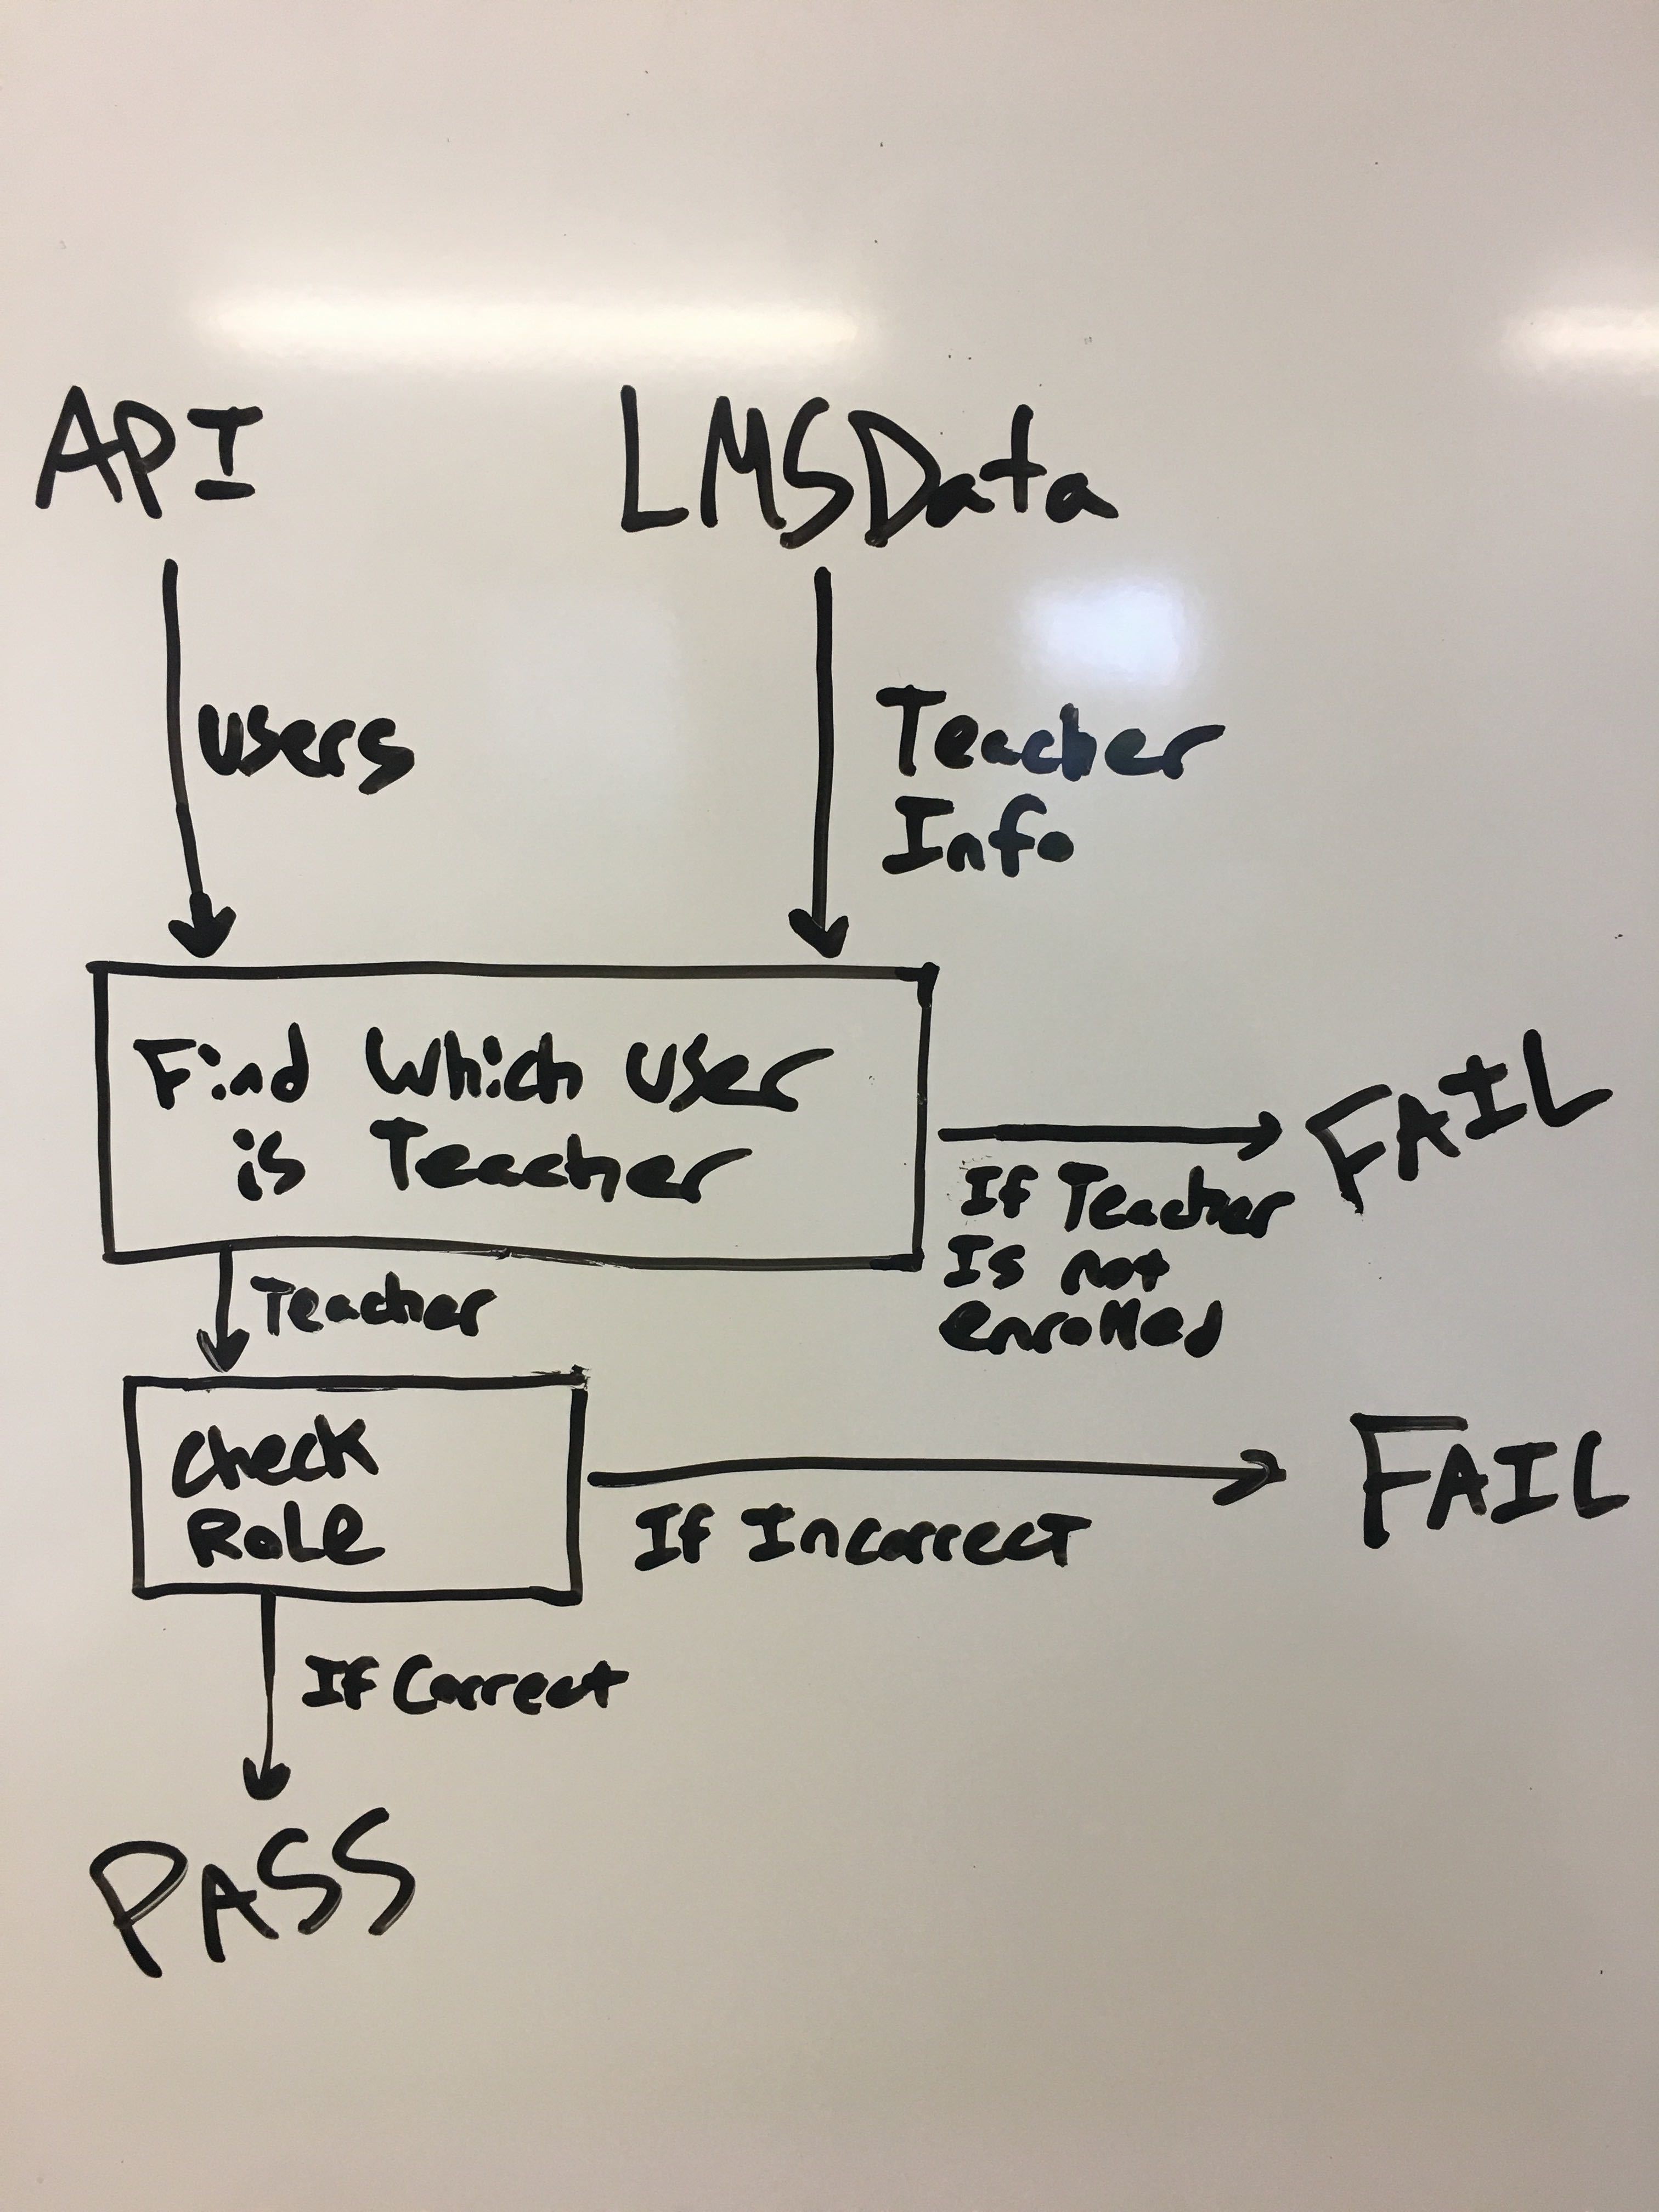 API
LMSData
Users
Teacher
Info
Find Which User
is Teacher
FAIL
If Teacher
Is not
enrolled
Teacher
Check
Role
FAIL
If Incorrect
If Correct
PASS